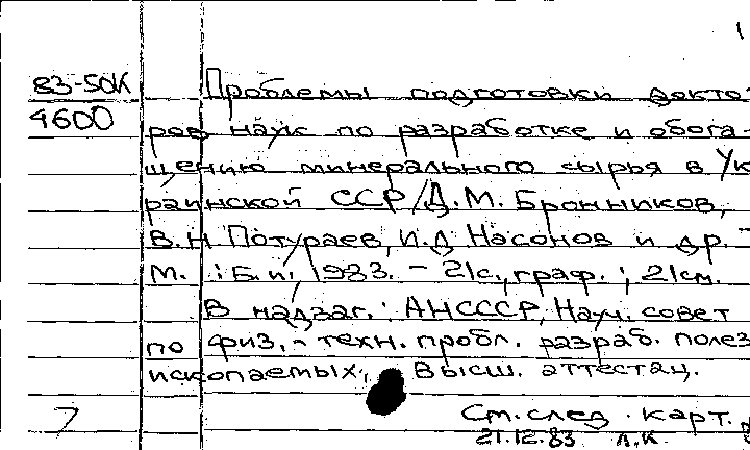 1
83-50К Проблемы подготовки докто-
4600 ров наук по разработке и обога-
щению минерального сырья в Ук-
раинской ССР/Д.М. Бронников,
В.Н Потураев, И.Д Насонов и др. -
М. : Б.и., 1983. - 21с., граф. ; 21см.
В надзаг. : АНСССР, Науч. совет
по физ. - техн. пробл. разраб. полез
ископаемых, Высш. аттестац.
См. след. карт.
21.12.83 Л.К.